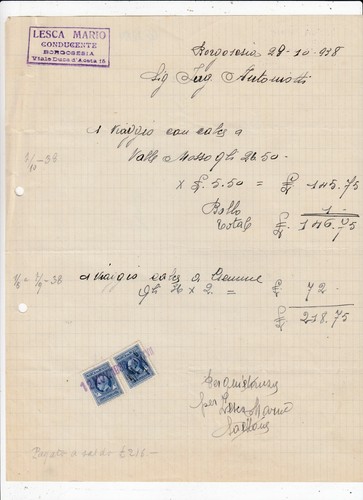 LESCA MARIO
CONDUCENTE
BORGOSESIA
Viale Duca d'Aosta 15
Borgosesia 29-10-938
Sig Ing. Antoniotti
1 Viaggio con calce a
Valle Mosso gli 26.50 -
x £. 5.50 = £ 145.75
Bollo 1 -
totale £. 146.75
1 Viaggio calce a
gli 36 x 2 = £ 72 -
£ 218.75
per Lesca Mario
Pagato a saldo £ 218.-